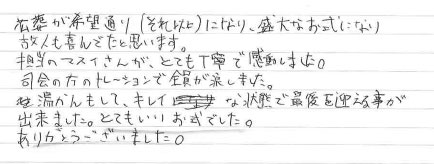 お葬が希望通り(それ以上)になり、盛大なお式になり
故人も喜んでたと思います。
担当のマスイさんが、とても丁寧で感動しました。
司会の方のトレーションで全員が涙しました。
湯かんもして、キレイな状態で最後を迎える事が
出来ました。とてもいいお式でした。
ありがとうございました。